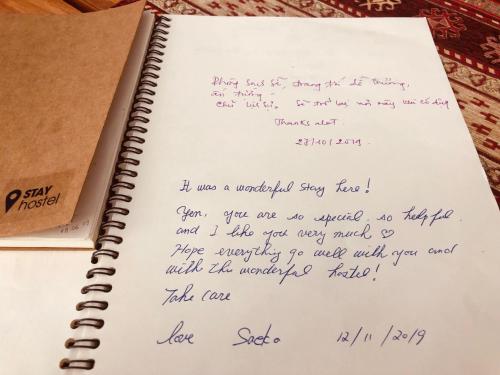 STAY
hostel
Phòng sạch sẽ, trang trí dễ thương,
ấn tượng.
Chủ lịch sự. Sẽ trở lại nơi này khi có dịp
Thanks alot.
27/10/2019.
It was a wonderful stay here!
Yen, you are so special, so helpful
and I like you very much ♡
Hope everything go well with you and
with this wonderful hostel!
Take care
love Saeko 12/11/2019